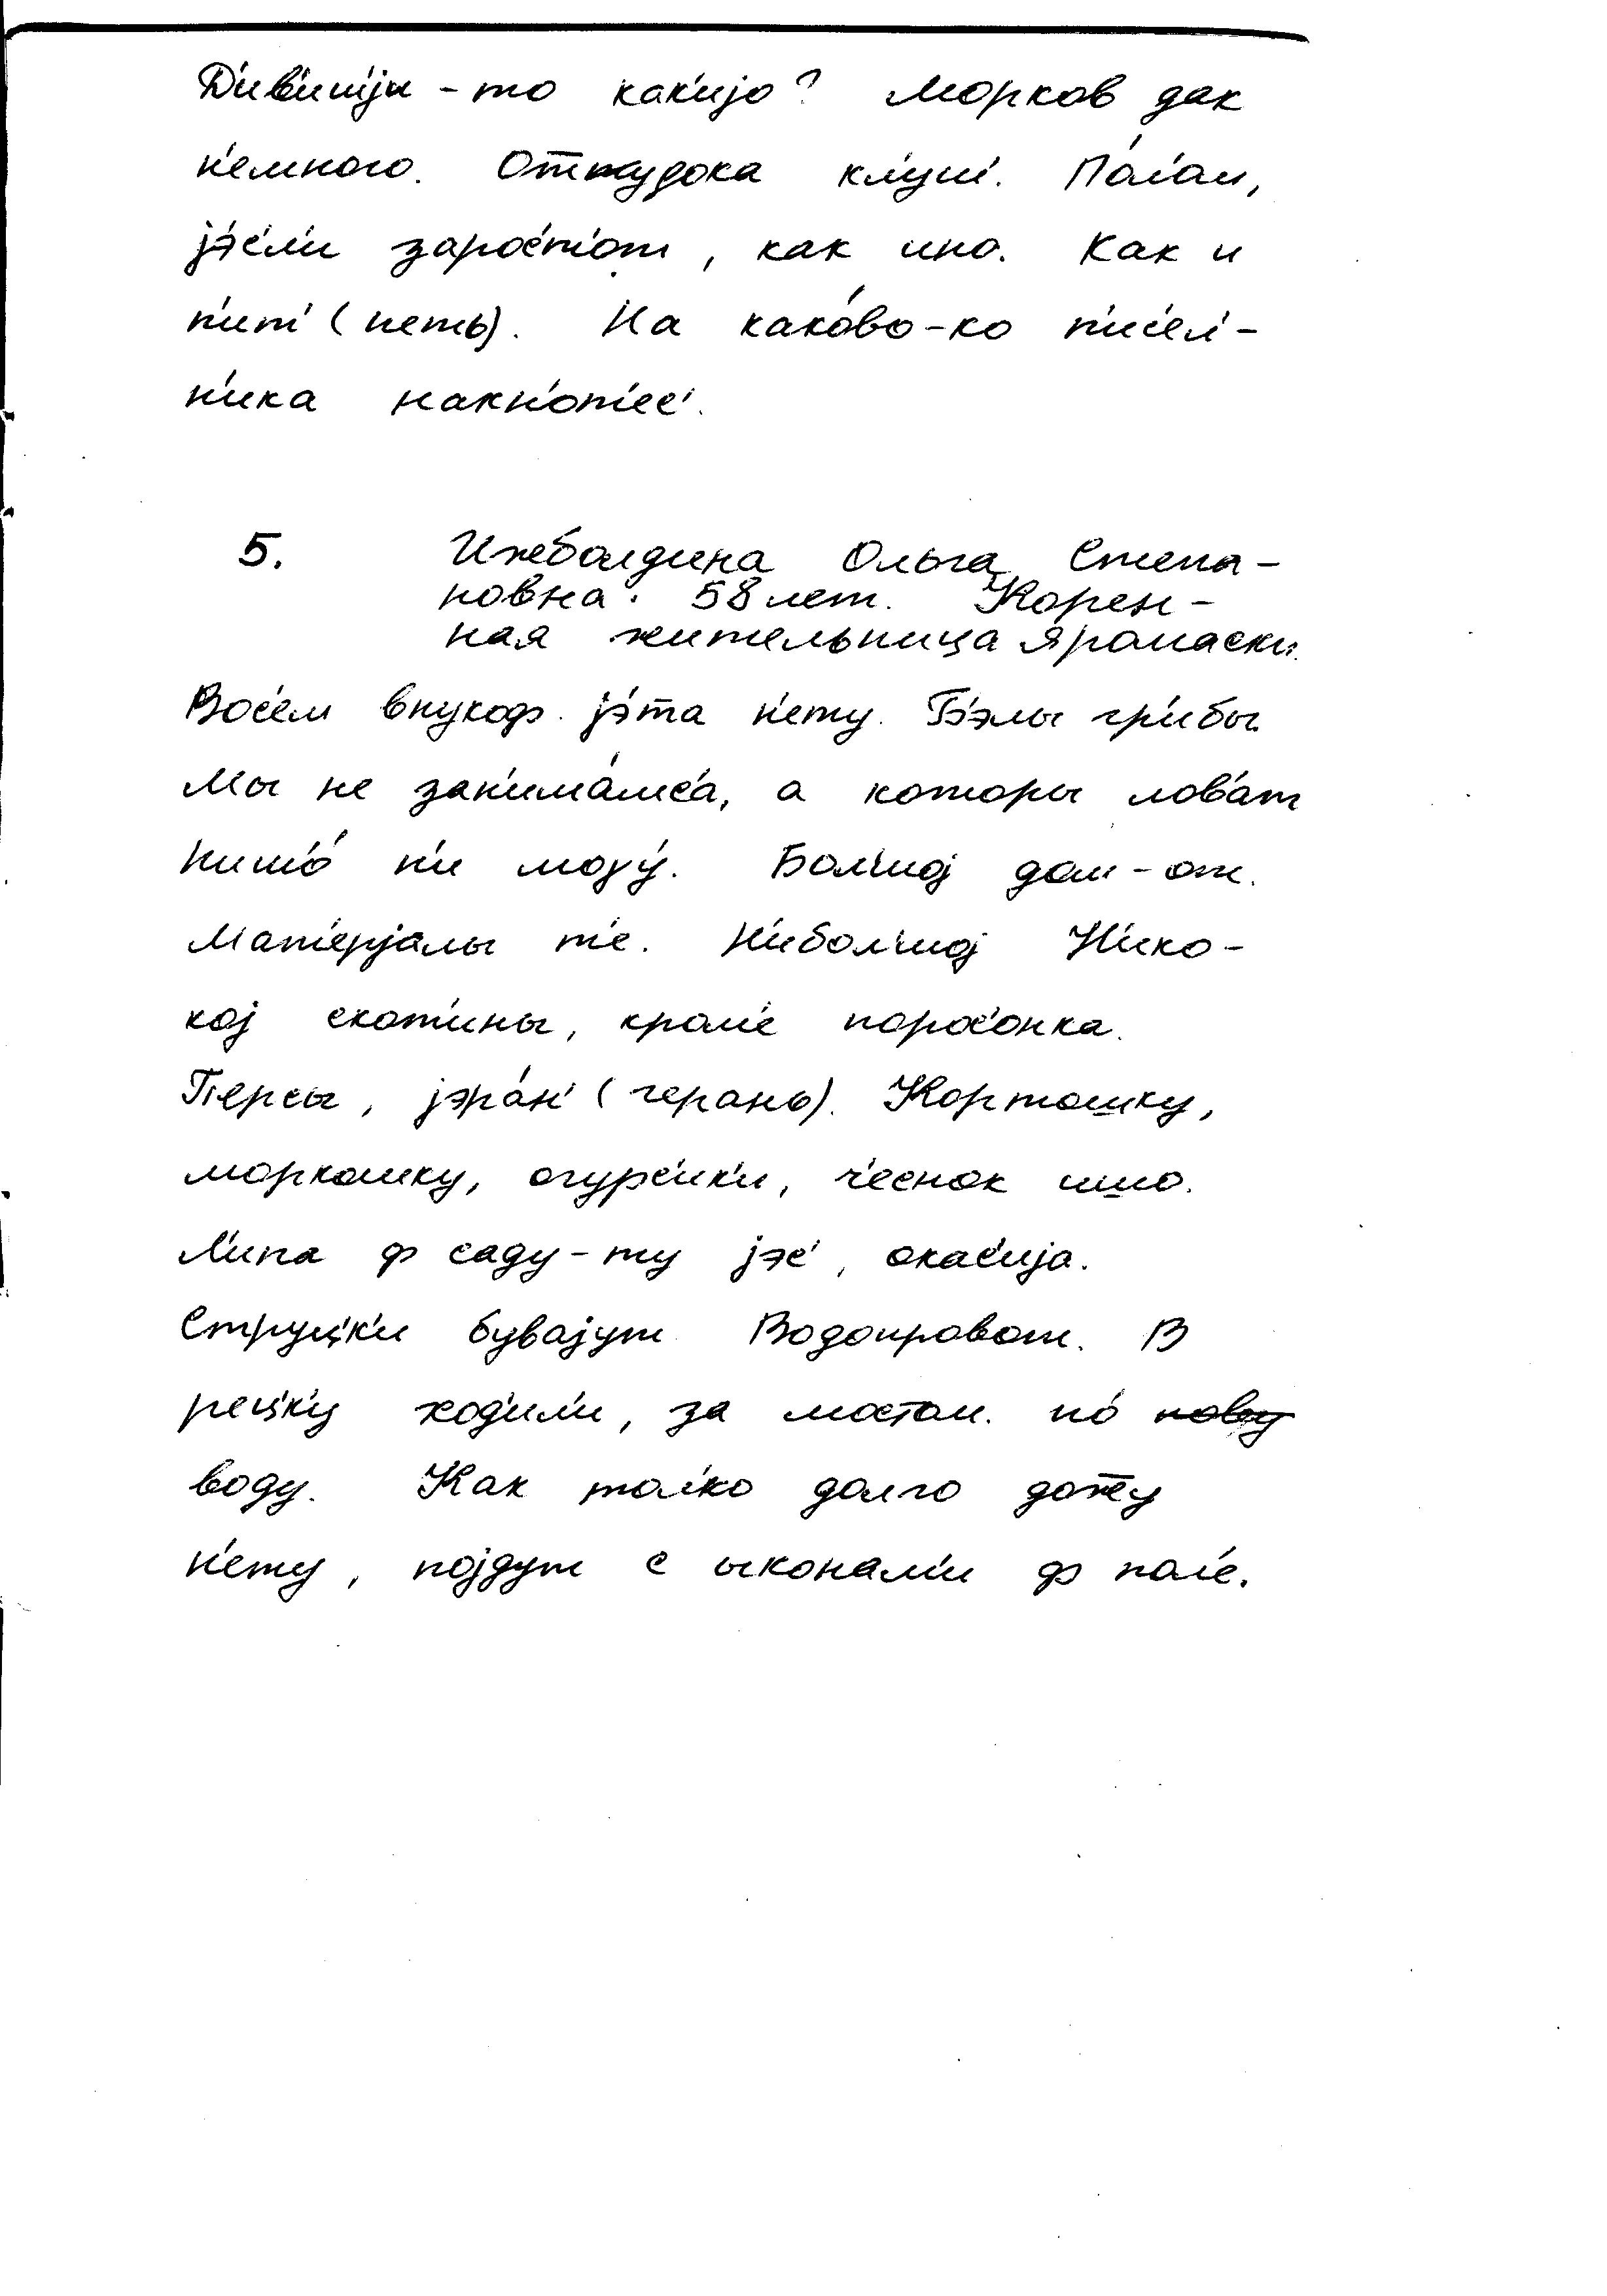 Д'ив'иш'jи-то как'ијо? Морков дак
н'емного. От̄тудока кл'уш'. Пол'ом,
jэс'л'и зарос'т'от, как ино. Как и
п'ит' (петь). На како́во-ко п'ис'ел'-
н'ика накн'от'ес'.
5. Ижболдина Ольга Степа-
новна. 58 лет. Корен-
ная жительница Яромаски.
Вос'ем внукоф. jэ́та н'ету. Б'элы гр'ибы
Мы не зан'има́мс'а, а которы лов'ат
Ниш'о́ н'и моγу́. Бол'шој дом-от.
Мат'ерјалы т'е. Н'ибол'шој Н'ико-
кој скот'ины, кром'е порос'онка.
П'ерсы, jэра́н' (герань). Кортошку,
моркошку, огурс'ик'и, ч'еснок ишо.
Л'ипа ф саду-ту jэс', окас'ија.
Струц'к'и бувајут. Водопровот. В
рец'ку ход'ил'и, за мостом. по́ нову
воду. Как тол'ко долго дож̄у
н'ету, појдут с ыконам'и ф пол'е.